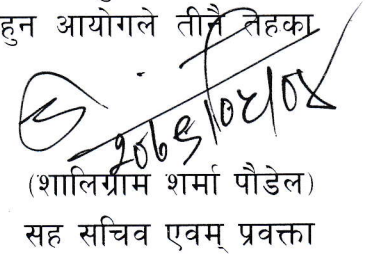 हुन आयोगले तीनै तहका
(शालिग्राम शर्मा पौडेल)
सह सचिव एवम् प्रवक्ता